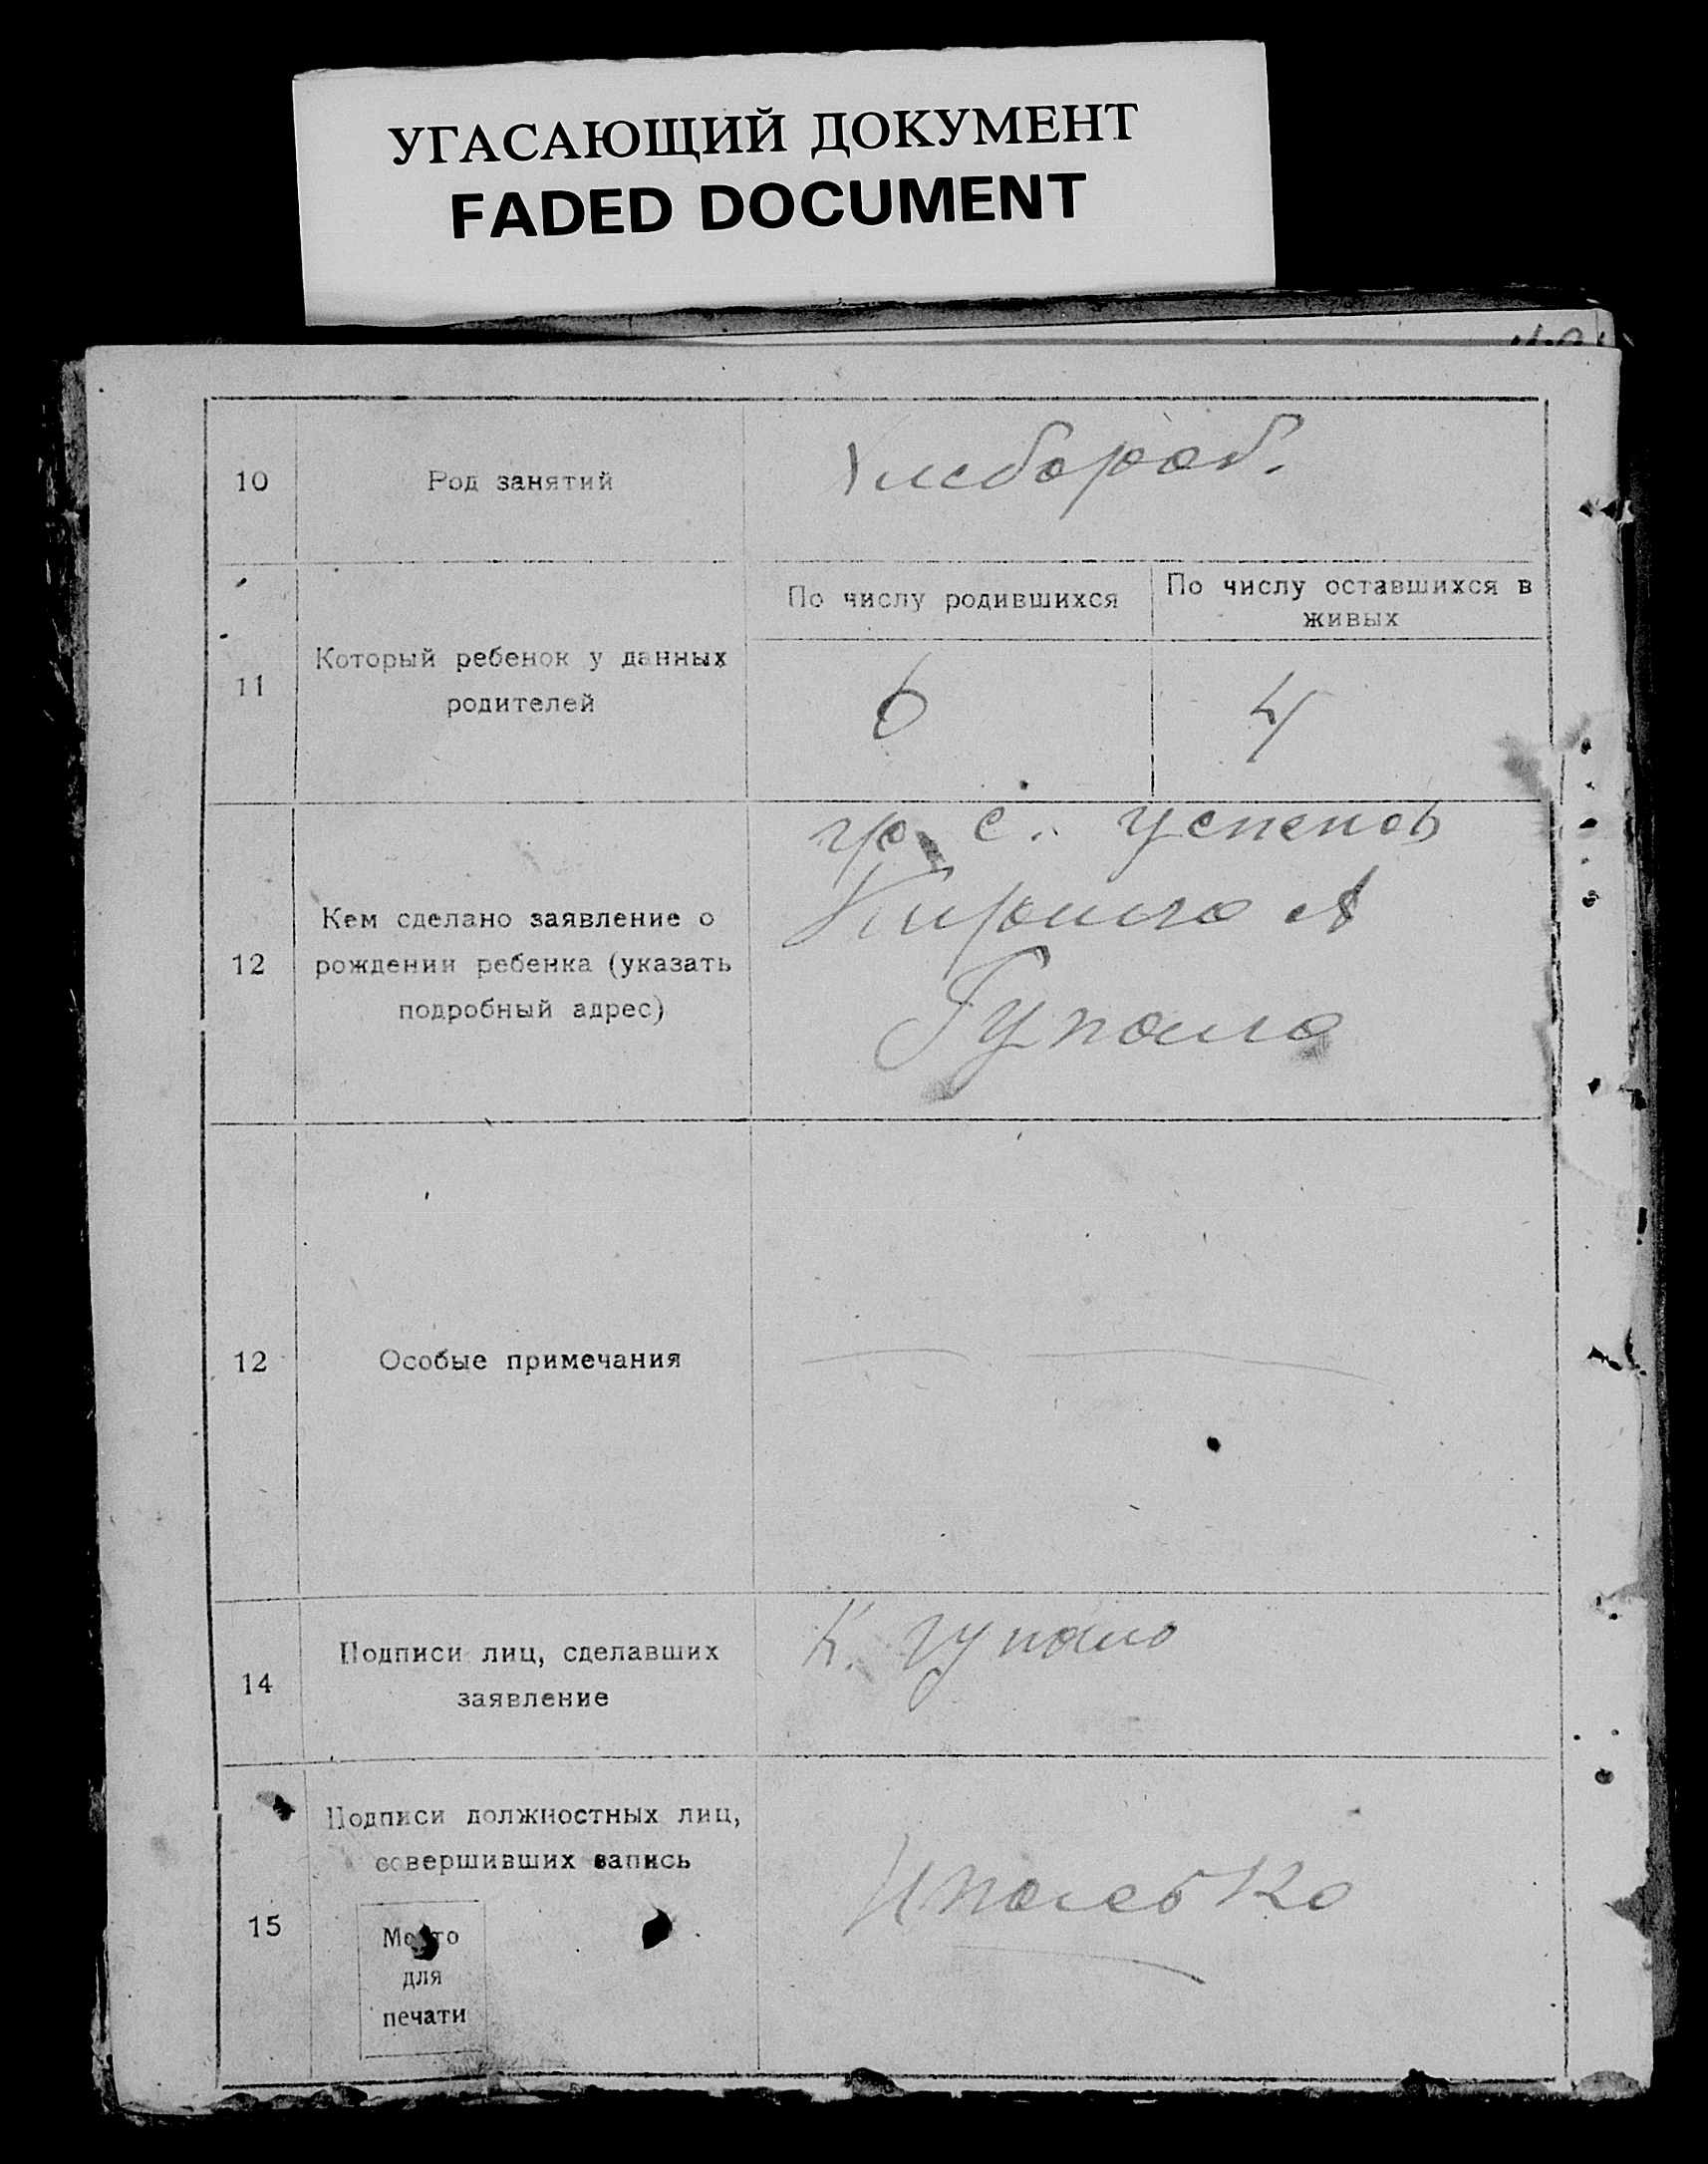 УГАСАЮЩИЙ ДОКУМЕНТ
FADED DOCUMENT
10
Род занятий
Хлебороб.
11
Который ребенок у данных
родителей
По числу родившихся
По числу оставшихся в
живых
6
4
12
Кем сделано заявление о
рождении ребенка (указать
подробный адрес)
гр. с. Успенов
Кирило А
Гупало
12
Особые примечания
14
Подписи лиц, сделавших
заявление
К. Гупало
15
Подписи должностных лиц,
совершивших запись
Место
для
печати